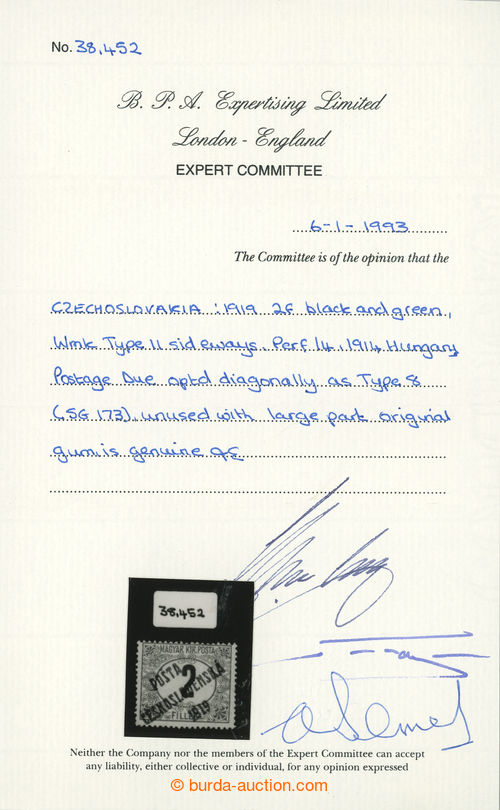 No. 38,452
B. P. A. Expertising Limited
London - England
EXPERT COMMITTEE
6-1-1993
The Committee is of the opinion that the
CZECHOSLOVAKIA : 1919 2f black and green,
Wmk Type 11 sideways. Perf 14, 1914 Hungary
Postage Due optd diagonally as Type 8
(SG 173), unused with large part original
gum is genuine
38,452
MAGYAR KIR. POSTA
POŠTA
2
ČESKOSLOVENSKÁ
1919
FILLÉR
Neither the Company nor the members of the Expert Committee can accept
any liability, either collective or individual, for any opinion expressed
© burda-auction.com